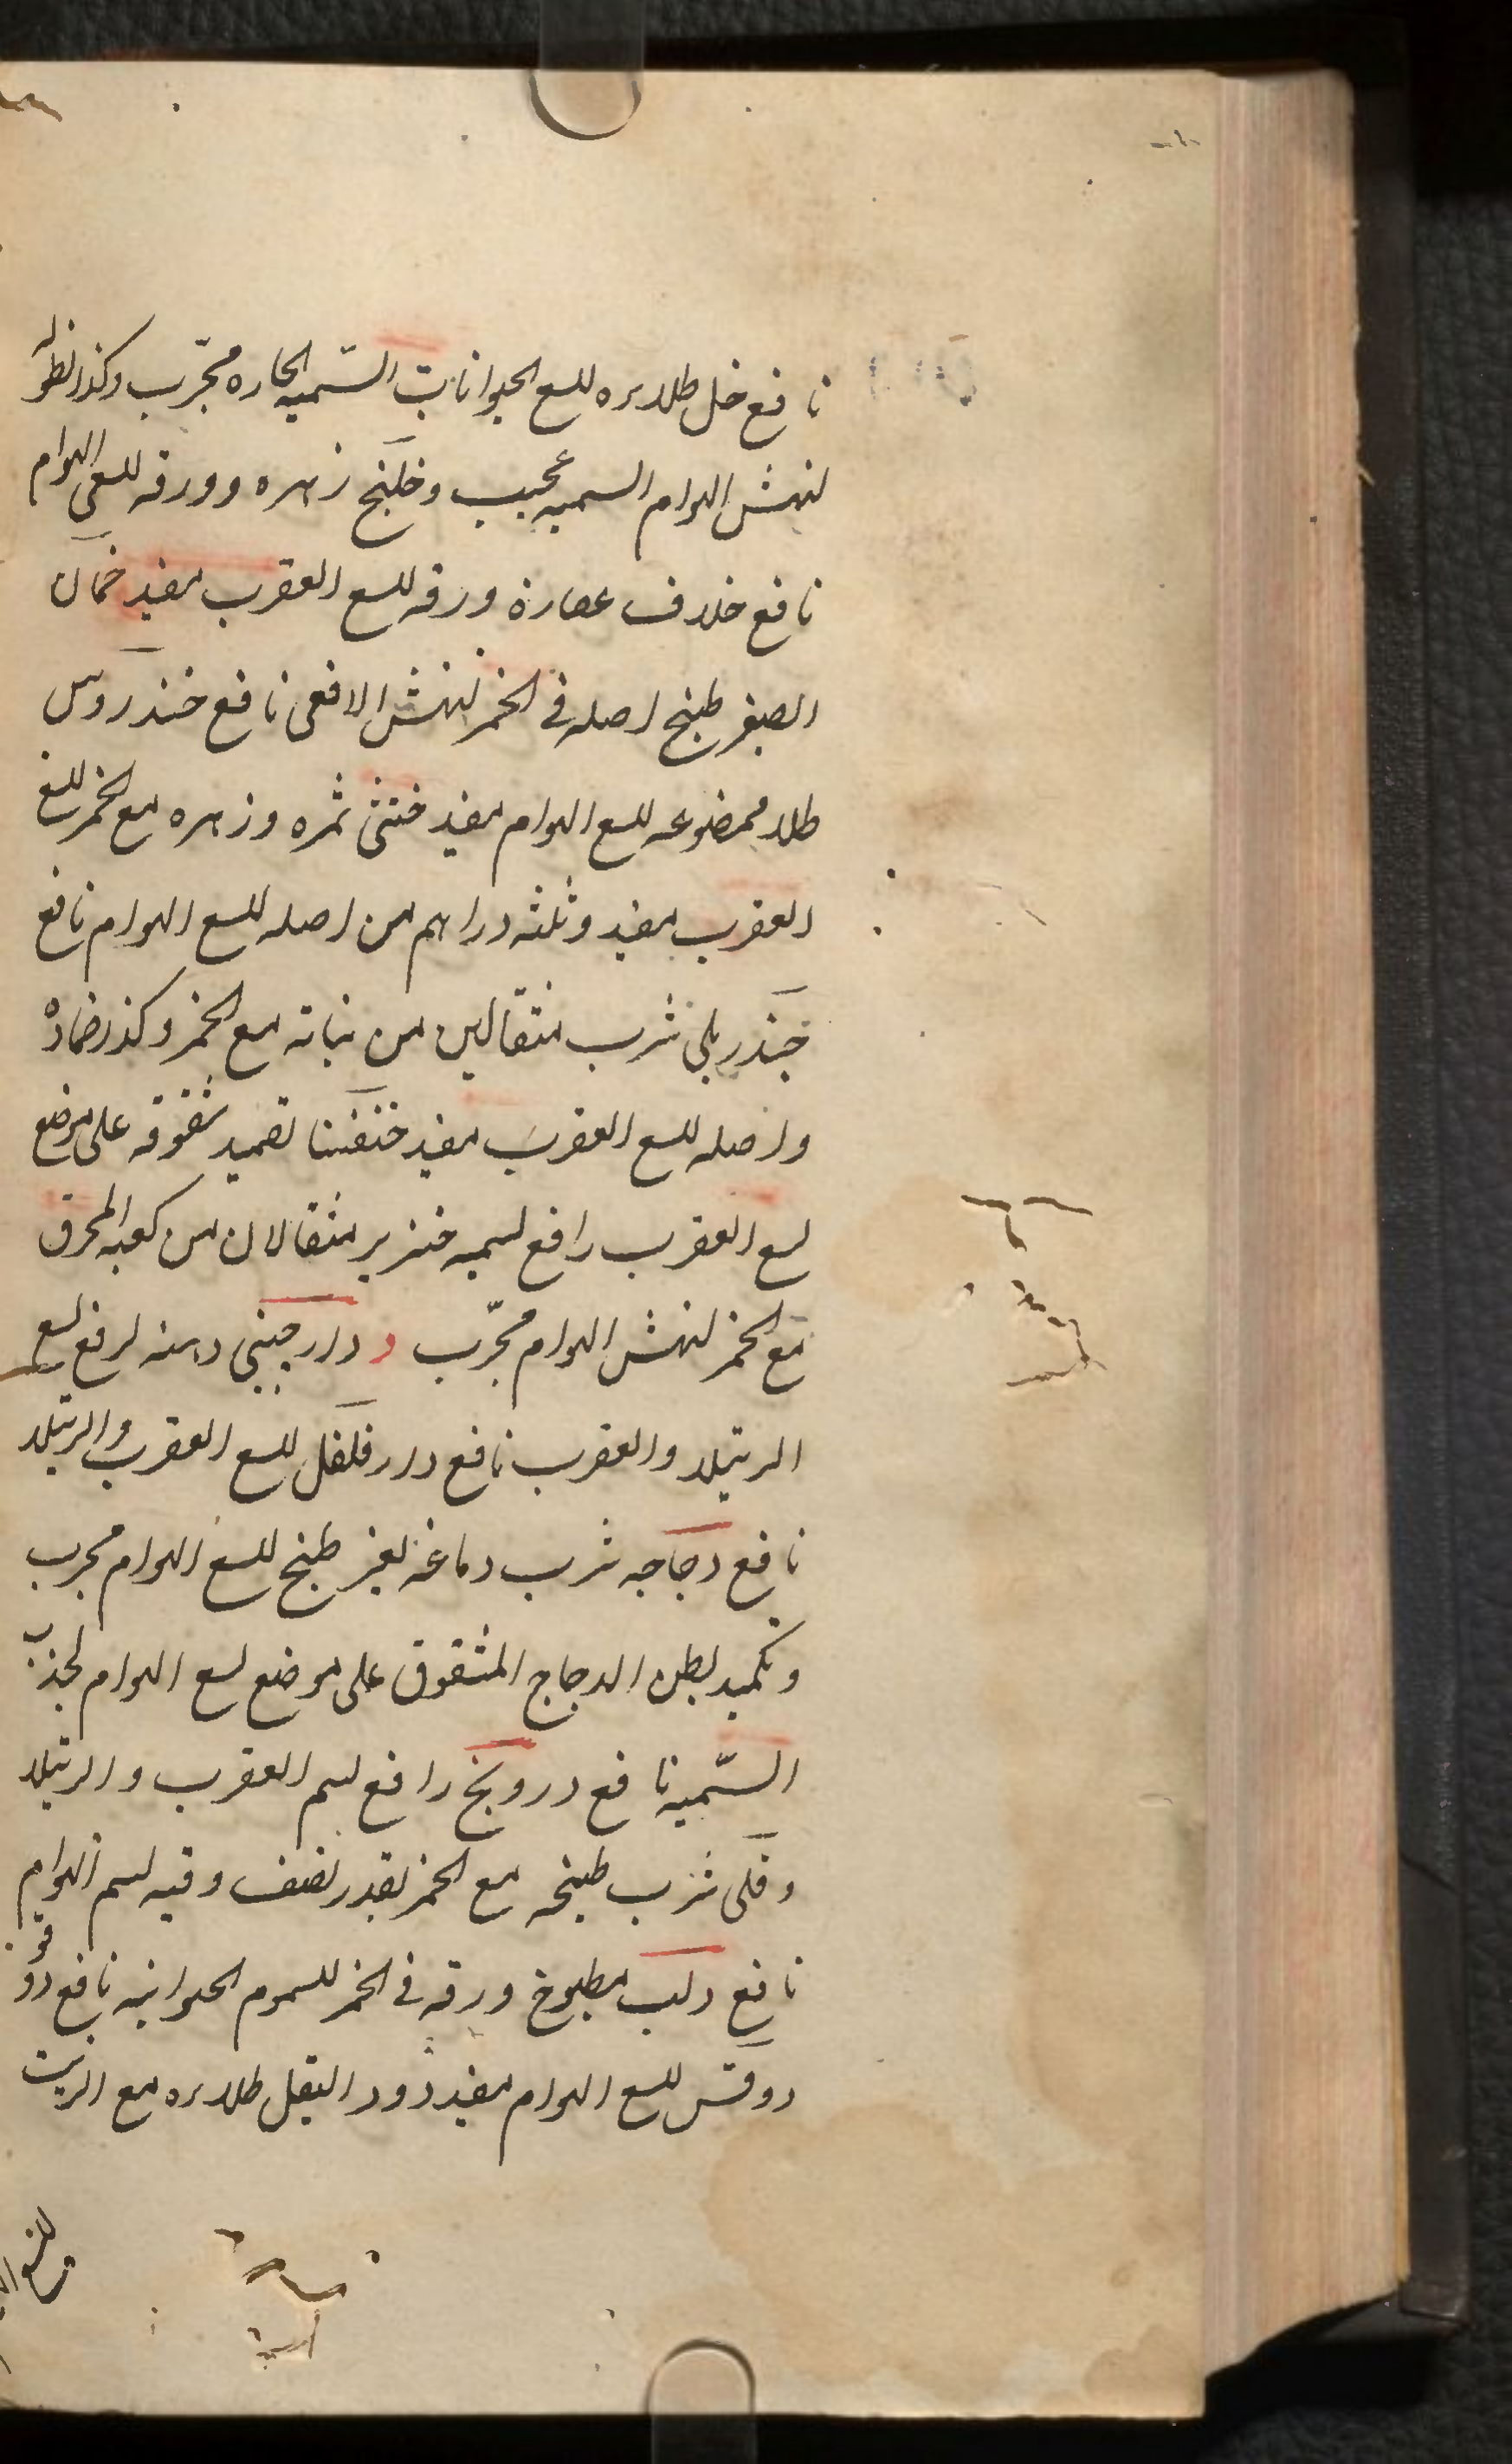 نافع خل طلاءه للسع الحيوانات السّميه الحاره مجرّب وكذا نطوله
لنهش الهوام السميه عجيب وخلنج زهره وورقه للسع الهوام
نافع خلاف عصارة ورقه للسع العقرب مفيد خمان
الصغير طبخ اصله فى الخمر لنهش الافعى نافع خندروس
طلاء ممضوغه للسع الهوام مفيد خنثى ثمره وزهره مع الخمر للسع
العقرب مفيد وثلثه دراهم من اصله للسع الهوام نافع
خندريلى شرب مثقالين من نباته مع الخمر وكذا ضماده
واصله للسع العقرب مفيد خنفسا تضميد شقوقه على موضع
لسع العقرب رافع لسميه خنزير مثقالان من كعبه المحرق
مع الخمر لنهش الهوام مجرّب د دارچينى دهنه لرفع لسع
الرتيلا والعقرب نافع دارفلفل للسع العقرب والرتيلا
نافع دجاجه شرب دماغه بغير طبخ للسع الهوام مجرب
وتكميد بطن الدجاج المشقوق على موضع لسع الهوام لجذب
السّميه نافع درونج رافع لسم العقرب والرتيلا
دفلى شرب طبيخه مع الخمر بقدر نصف وقيه لسم الهوام
نافع دلب مطبوخ ورقه فى الخمر للسموم الحيوانيه نافع دوقو
دوقس للسع الهوام مفيد دود البقل طلاءه مع الزيت
للسع